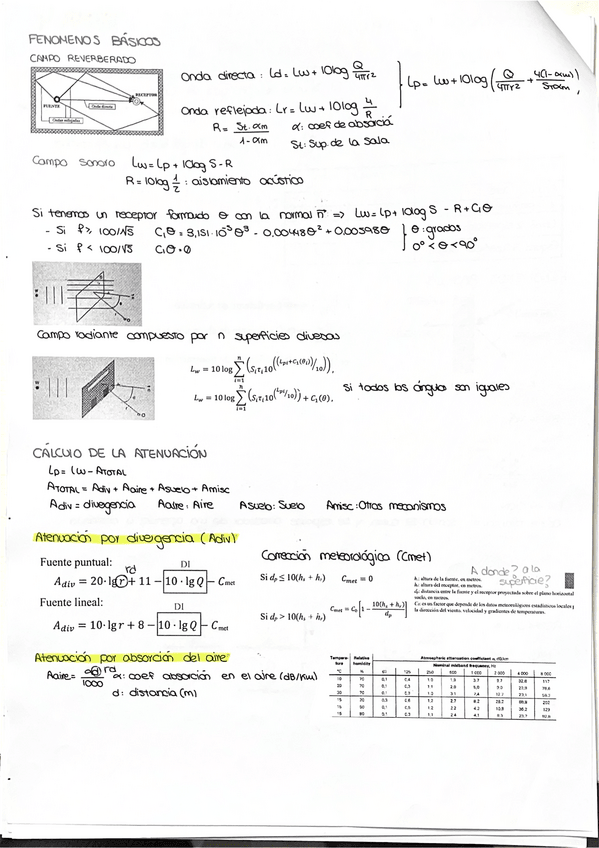 FENOMENOS BÁSICOS
CAMPO REVERBERADO
FUENTE
RECEPTOR
Onda directa
Ondas reflejadas
Onda directa: Ld = Lw + 10log Q/4πr2
Onda reflejada: Lr = Lw + 10log 4/R
Lp = Lw + 10log (Q/4πr2 + 4(1-αm)/Stαm)
R = St·αm / 1-αm
α: coef de absorció
St: Sup de la sala
Campo Sonoro Lw = Lp + 10log S - R
R = 10log 1/2 : aislamiento acústico
Si tenemos un receptor formando θ con la normal n => Lw = Lp + 10log S - R + C1θ
- Si f ≥ 100/√S C1θ = 3,151·10⁻⁵θ³ - 0,00448θ² + 0,00598θ
- Si f < 100/√S C1θ = 0
θ: grados
0° < θ < 90°
Campo radiante compuesto por n superficies diversas
Lw = 10 log Σ (Siτi10^((Lpi+C1(θi))/10)),
Lw = 10 log Σ (Siτi10^(Lpi/10)) + C1(θ),
Si todos los ángulos son iguales
CÁLCULO DE LA ATENUACIÓN
Lp = Lw - ATOTAL
ATOTAL = Adiv + Aaire + Asuelo + Amisc
Adiv = divergencia Aaire: Aire Asuelo: Suelo Amisc: Otros mecanismos
Atenuación por divergencia (Adiv)
Fuente puntual:
rd
DI
Adiv = 20·lg(r) + 11 - 10·lg Q - Cmet
Fuente lineal:
DI
Adiv = 10·lg r + 8 - 10·lg Q - Cmet
Corrección meteorológica (Cmet)
Si dp ≤ 10(hs + hr) Cmet = 0
Si dp > 10(hs + hr) Cmet = C0[1 - 10(hs + hr)/dp]
A donde? a la superficie?
hs: altura de la fuente, en metros.
hr: altura del receptor, en metros.
dp: distancia entre la fuente y el receptor proyectada sobre el plano horizontal
suelo, en metros.
C0: es un factor que depende de los datos meteorológicos estadísticos locales y
la dirección del viento, velocidad y gradientes de temperaturas.
Atenuación por absorción del aire
Aaire = αd/1000 rd α: coef absorción en el aire (dB/Km)
d: distancia (m)
Tempera-ture Relative humidity Atmospheric attenuation coefficient α, dB/km
Nominal midband frequency, Hz
°C % 63 125 250 500 1 000 2 000 4 000 8 000
10 70 0,1 0,4 1,0 1,9 3,7 9,7 32,8 117
20 70 0,1 0,3 1,1 2,8 5,0 9,0 22,9 76,6
30 70 0,1 0,3 1,0 3,1 7,4 12,7 23,1 59,3
15 20 0,3 0,6 1,2 2,7 8,2 28,2 88,8 202
15 50 0,1 0,5 1,2 2,2 4,2 10,8 36,2 129
15 80 0,1 0,3 1,1 2,4 4,1 8,3 23,7 82,8